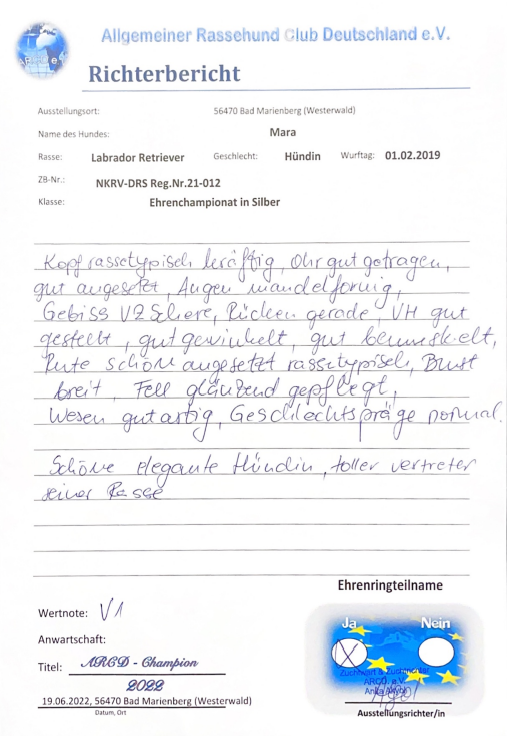 Allgemeiner Rassehund Club Deutschland e.V.
Richterbericht
Ausstellungsort: 56470 Bad Marienberg (Westerwald)
Name des Hundes: Mara
Rasse: Labrador Retriever Geschlecht: Hündin Wurftag: 01.02.2019
ZB-Nr.: NKRV-DRS Reg.Nr.21-012
Klasse: Ehrenchampionat in Silber
Kopf rassetypisch, kräftig, Ohr gut getragen,
gut angesetzt, Augen mandelförmig,
Gebiss VZ Schere, Rücken gerade, VH gut
gestellt, gut gewinkelt, gut bemuskelt,
Rute schön angesetzt rassetypisch, Brust
breit, Fell glänzend gepflegt,
Wesen gutartig, Geschlechtspräge normal.
Schöne elegante Hündin, toller vertreter
seiner Rasse
Ehrenringteilname
Wertnote: V1
Ja Nein
Anwartschaft:
Titel: ARCD - Champion
2022
Zuchtwart & Zuchtrichter
ARCD e.V.
19.06.2022, 56470 Bad Marienberg (Westerwald)
Datum, Ort
Ausstellungsrichter/in